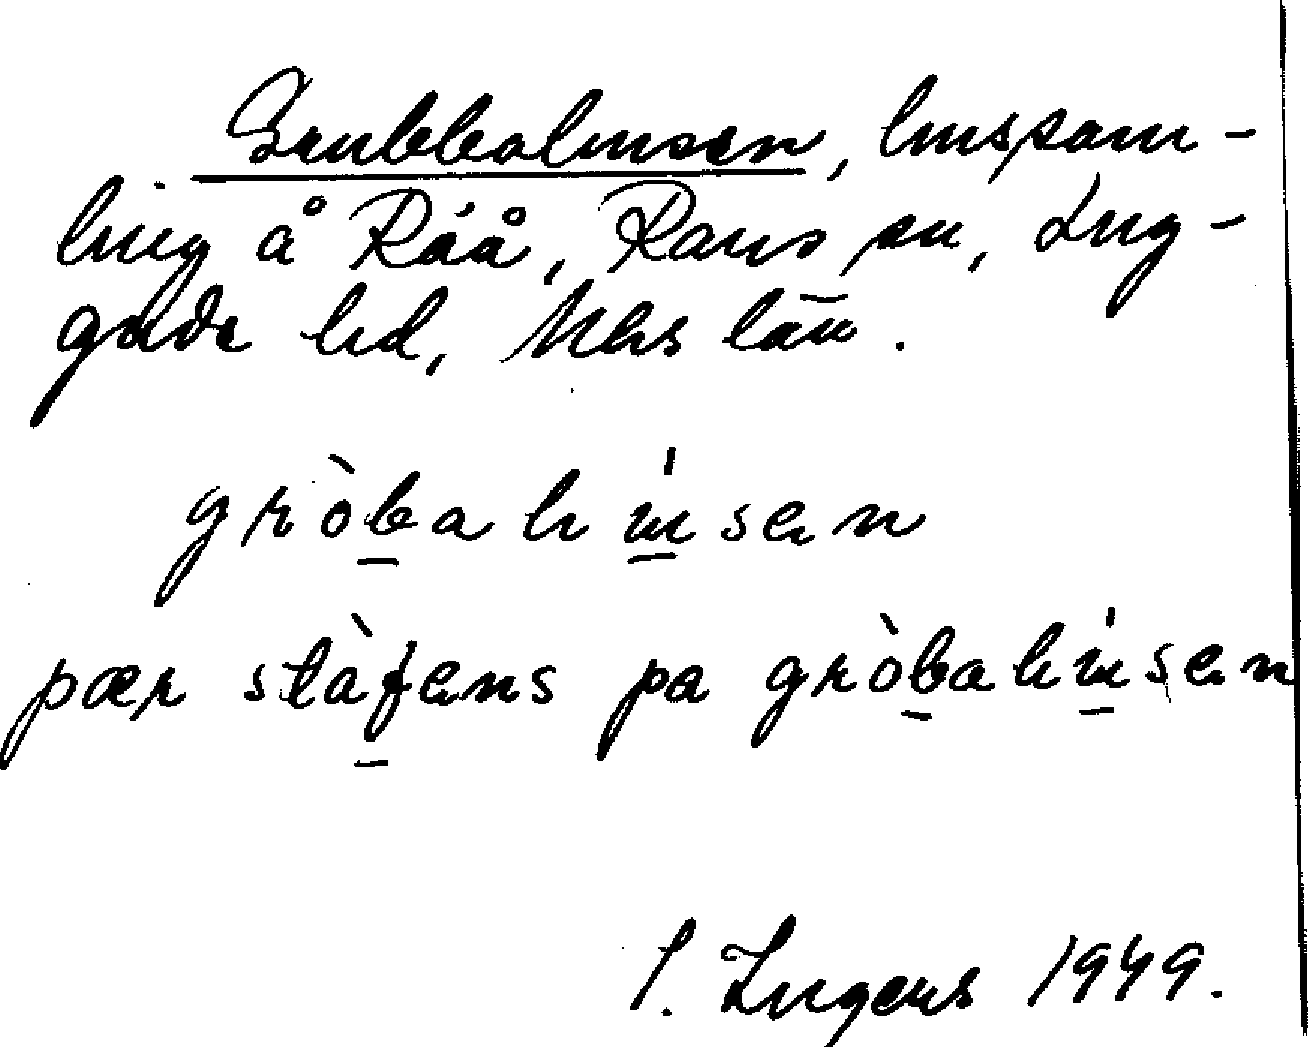 Grubbahusen, hussam-
ling å Råå, Raus sn, Lug-
gude hd, Mhs län.
gròbahúsen
pær stàfens pa gròbahúsen
I. Ingers 1949.